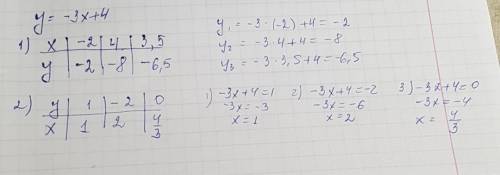 y = -3x+4
1) x | -2 | 4 | 3,5
y | -2 | -8 | -6,5
y₁ = -3·(-2)+4 = -2
y₂ = -3·4+4 = -8
y₃ = -3·3,5+4 = -6,5
2) y | 1 | -2 | 0
x | 1 | 2 | 4/3
1) -3x+4=1
-3x=-3
x=1
2) -3x+4=-2
-3x=-6
x=2
3) -3x+4=0
-3x=-4
x = 4/3